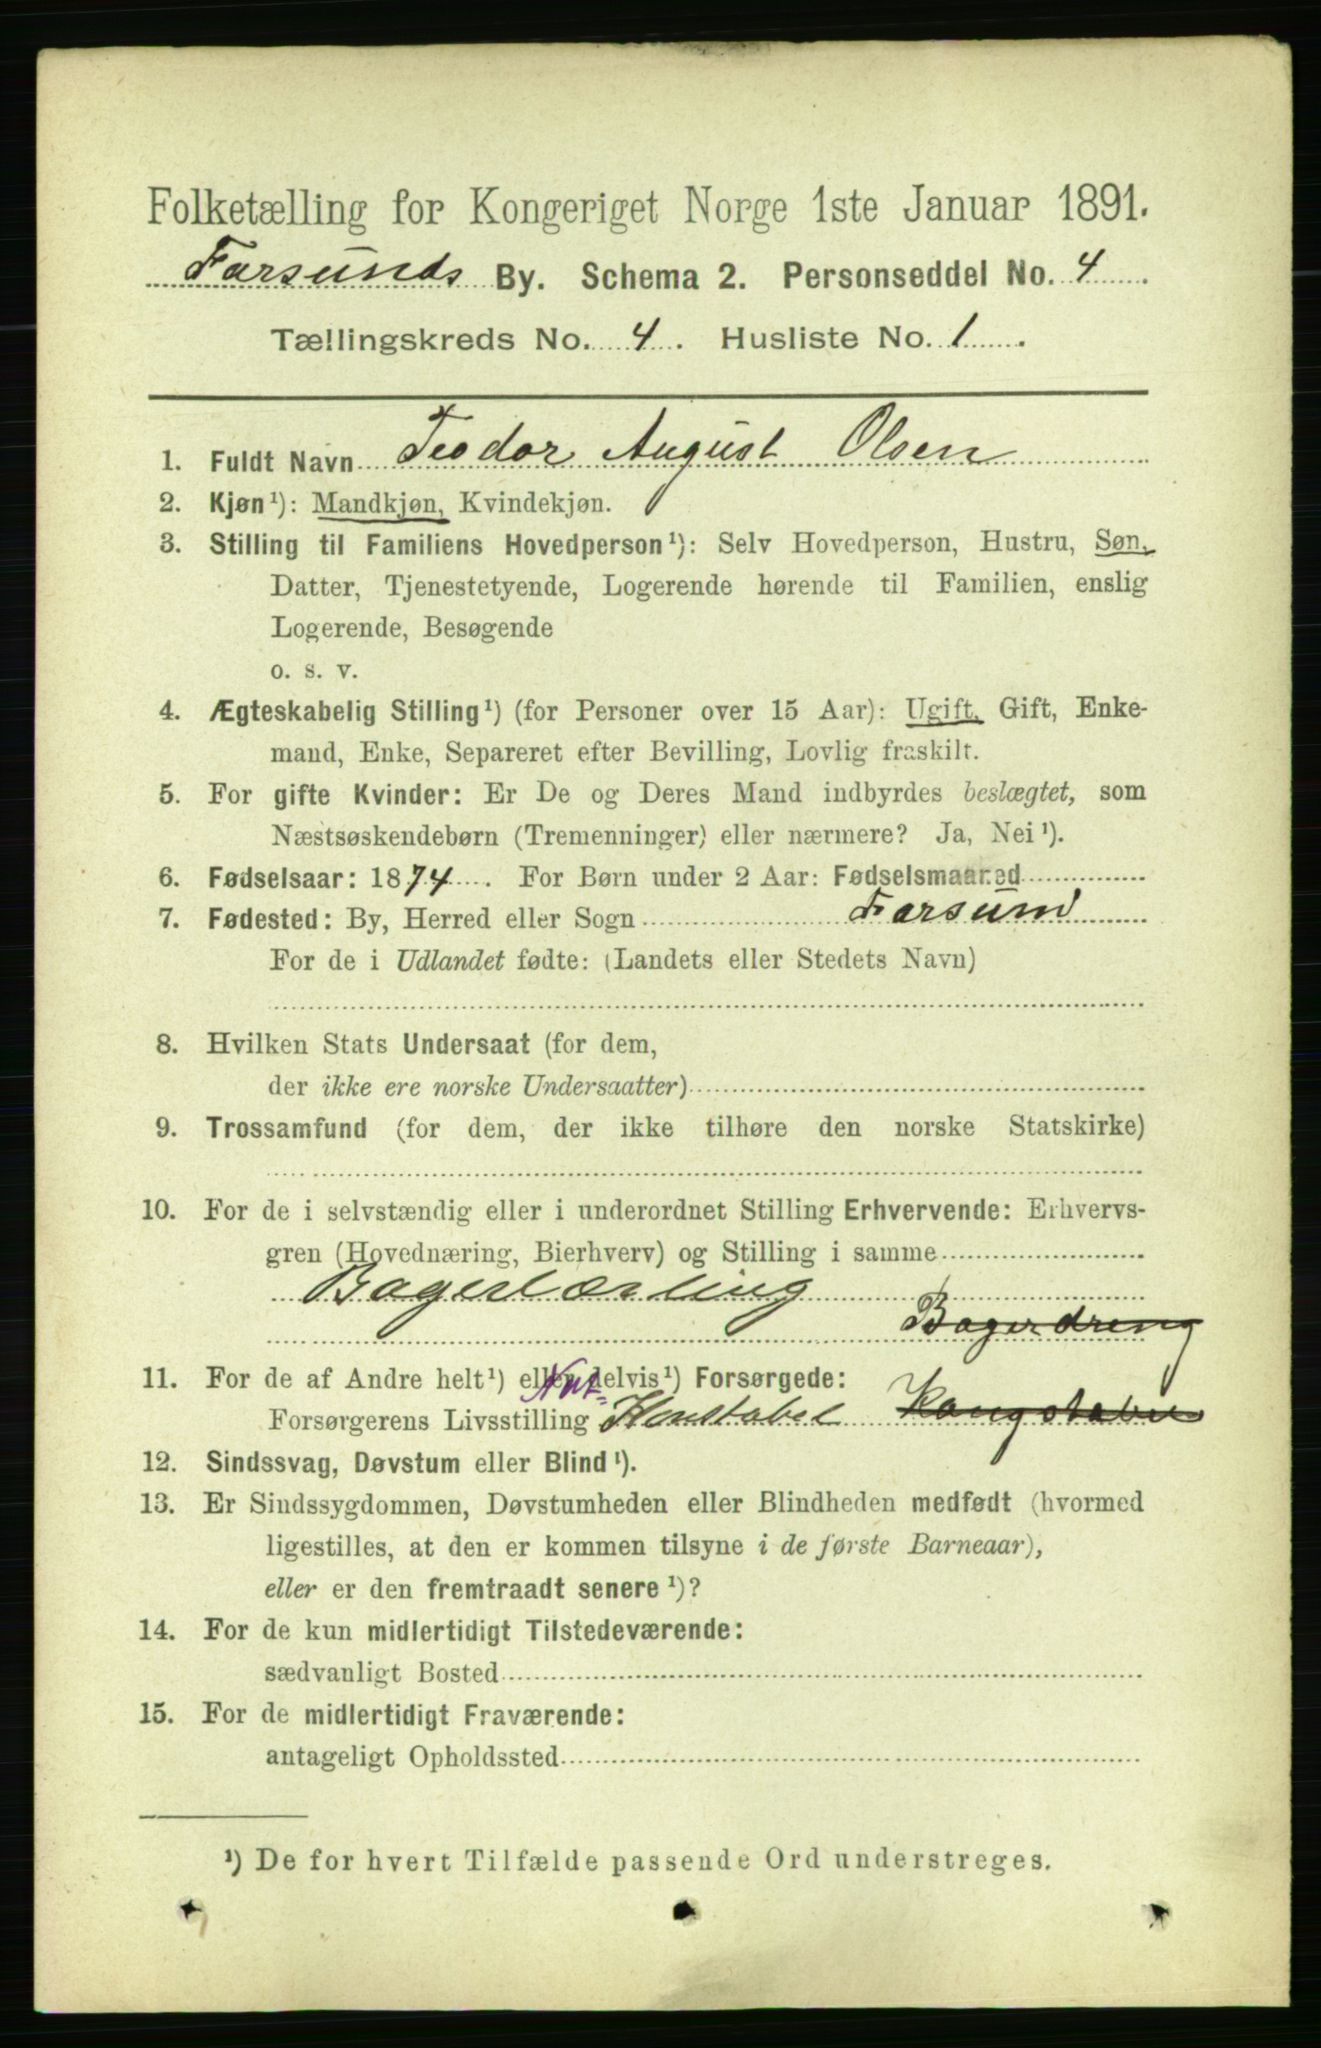 Folketælling for Kongeriget Norge 1ste Januar 1891.
Farsunds By. Schema 2. Personseddel No. 4
Tællingskreds No. 4. Husliste No. 1
1. Fuldt Navn Teodor August Olsen
2. Kjøn¹): Mandkjøn, Kvindekjøn.
3. Stilling til Familiens Hovedperson¹): Selv Hovedperson, Hustru, Søn,
Datter, Tjenestetyende, Logerende hørende til Familien, enslig
Logerende, Besøgende
o. s. v.
4. Ægteskabelig Stilling¹) (for Personer over 15 Aar): Ugift, Gift, Enke-
mand, Enke, Separeret efter Bevilling, Lovlig fraskilt.
5. For gifte Kvinder: Er De og Deres Mand indbyrdes beslægtet, som
Næstsøskendebørn (Tremenninger) eller nærmere? Ja, Nei¹).
6. Fødselsaar: 1874. For Børn under 2 Aar: Fødselsmaaned
7. Fødested: By, Herred eller Sogn Farsund
For de i Udlandet fødte: (Landets eller Stedets Navn)
8. Hvilken Stats Undersaat (for dem,
der ikke ere norske Undersaatter)
9. Trossamfund (for dem, der ikke tilhøre den norske Statskirke)
10. For de i selvstændig eller i underordnet Stilling Erhvervende: Erhvervs-
gren (Hovednæring, Bierhverv) og Stilling i samme
Bagerlærling
Bagerdreng
11. For de af Andre helt¹) eller delvis¹) Forsørgede:
Nat=
Forsørgerens Livsstilling Konstabel Kongstabel
12. Sindssvag, Døvstum eller Blind¹).
13. Er Sindssygdommen, Døvstumheden eller Blindheden medfødt (hvormed
ligestilles, at den er kommen tilsyne i de første Barneaar),
eller er den fremtraadt senere¹)?
14. For de kun midlertidigt Tilstedeværende:
sædvanligt Bosted
15. For de midlertidigt Fraværende:
antageligt Opholdssted
¹) De for hvert Tilfælde passende Ord understreges.